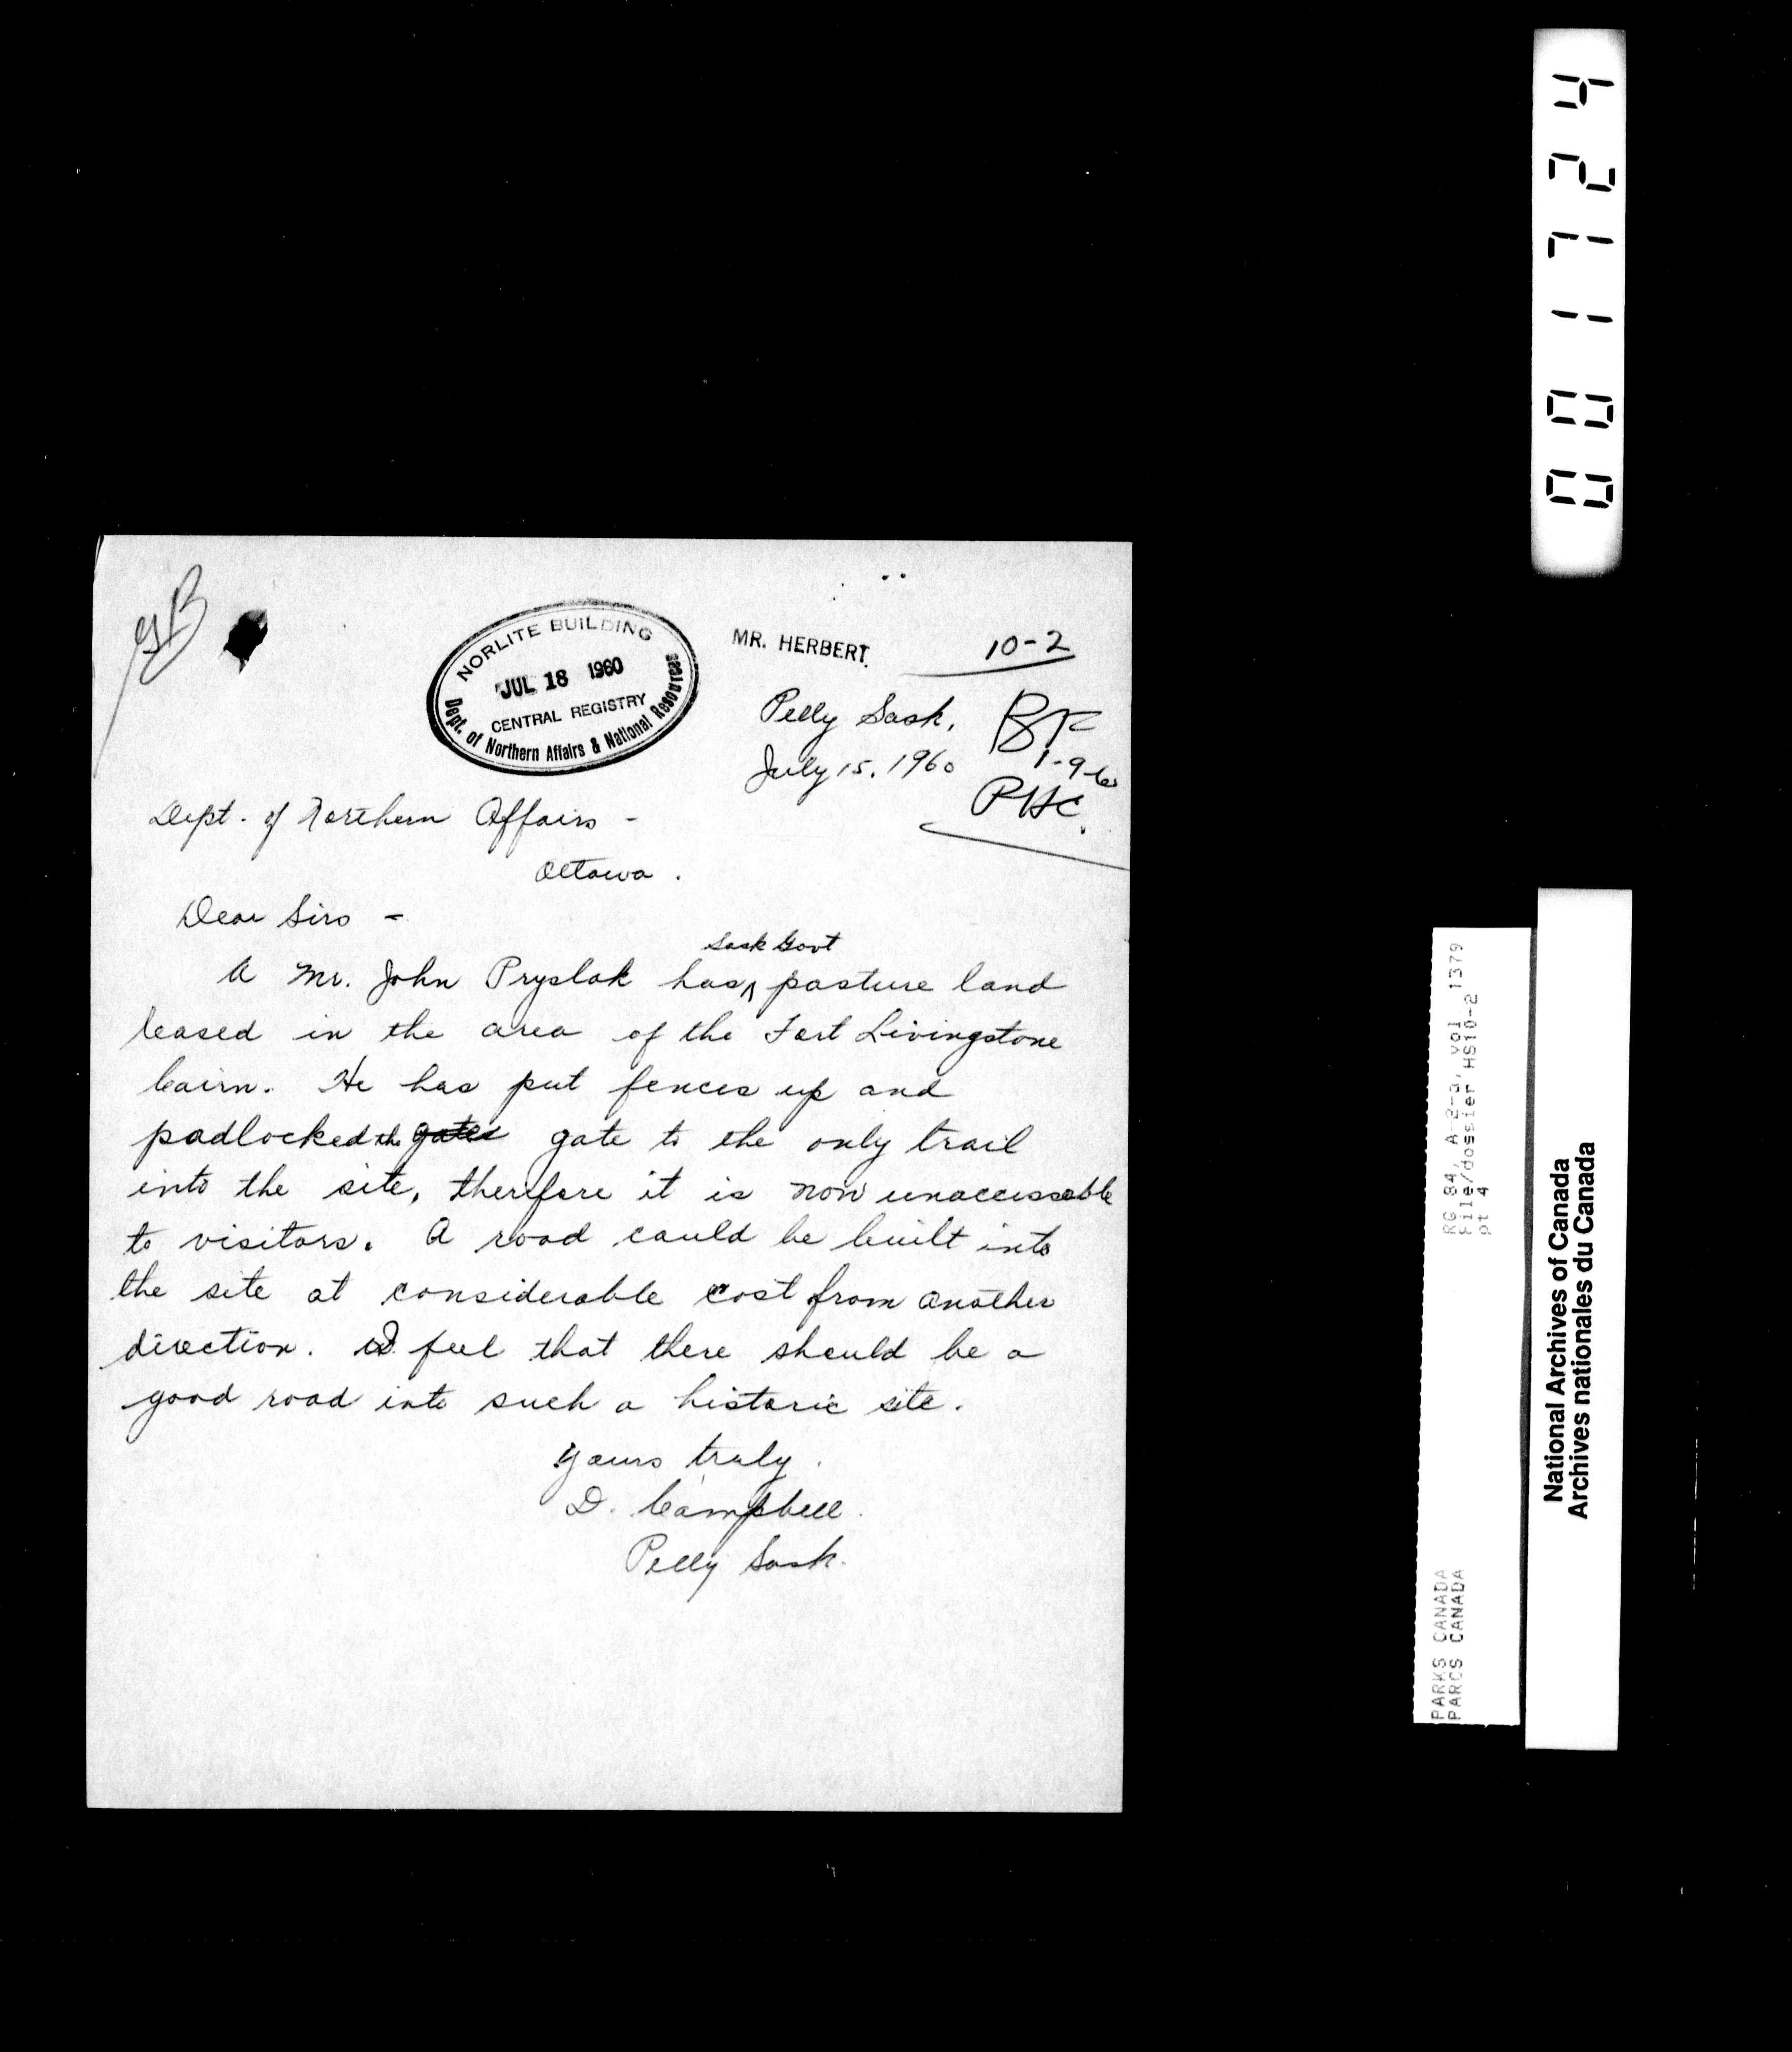 JB
NORLITE BUILDING
JUL 18 1960
CENTRAL REGISTRY
Dept. of Northern Affairs & National Resources
MR. HERBERT.
10-2
Pelly Sask,
July 15, 1960
BF
1-9-60
PHC.
Dept. of Northern Affairs -
Ottawa.
Dear Sirs -
Sask Govt
A Mr. John Pryslak has ^ pasture land
leased in the area of the Fort Livingstone
Cairn. He has put fences up and
padlocked the gates gate to the only trail
into the site, therefore it is now unaccessable
to visitors. A road could be built into
the site at considerable cost from another
direction. I feel that there should be a
good road into such a historic site.
Yours truly.
D. Campbell.
Pelly Sask.
001724
RG 84, A-2-a, vol 1379
File/dossier HS10-2
pt 4
PARKS CANADA
PARCS CANADA
National Archives of Canada
Archives nationales du Canada